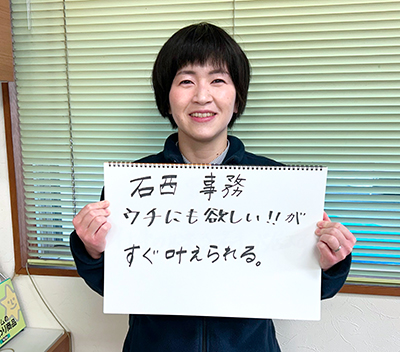 石西 事務
ウチにも欲しい!!が
すぐ叶えられる。